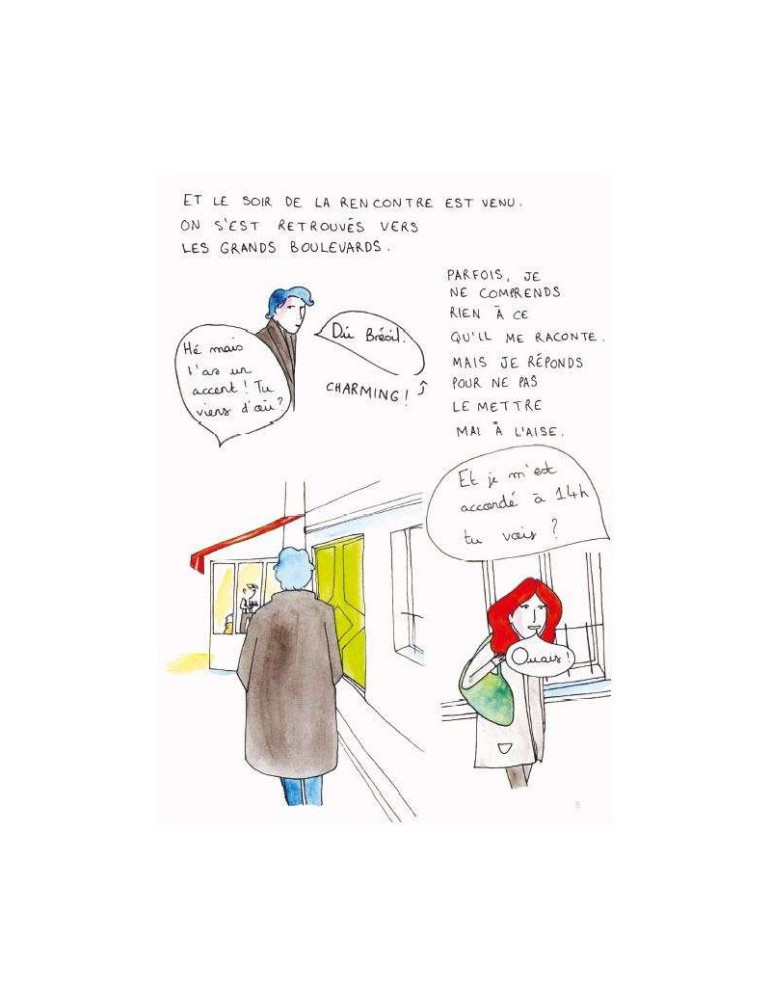 ET LE SOIR DE LA RENCONTRE EST VENU.
ON S'EST RETROUVÉS VERS
LES GRANDS BOULEVARDS.
Hé mais
t'as un
accent! Tu
viens d'où?
Du Brésil.
CHARMING!
PARFOIS, JE
NE COMPRENDS
RIEN À CE
QU'IL ME RACONTE.
MAIS JE RÉPONDS
POUR NE PAS
LE METTRE
MAL À L'AISE.
Et je m'est
accordé à 14h
tu vois ?
Ouais!